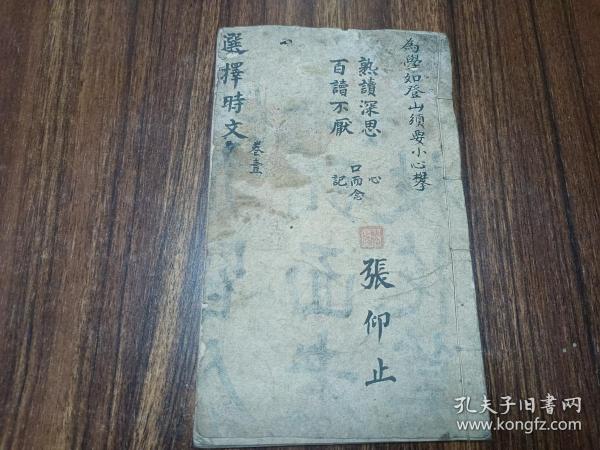 為學如登山須要小心攀
熟讀深思
百讀不厭
心
口而念
記
張仰止
選擇時文
卷壹
孔夫子旧书网
www.kongfz.com